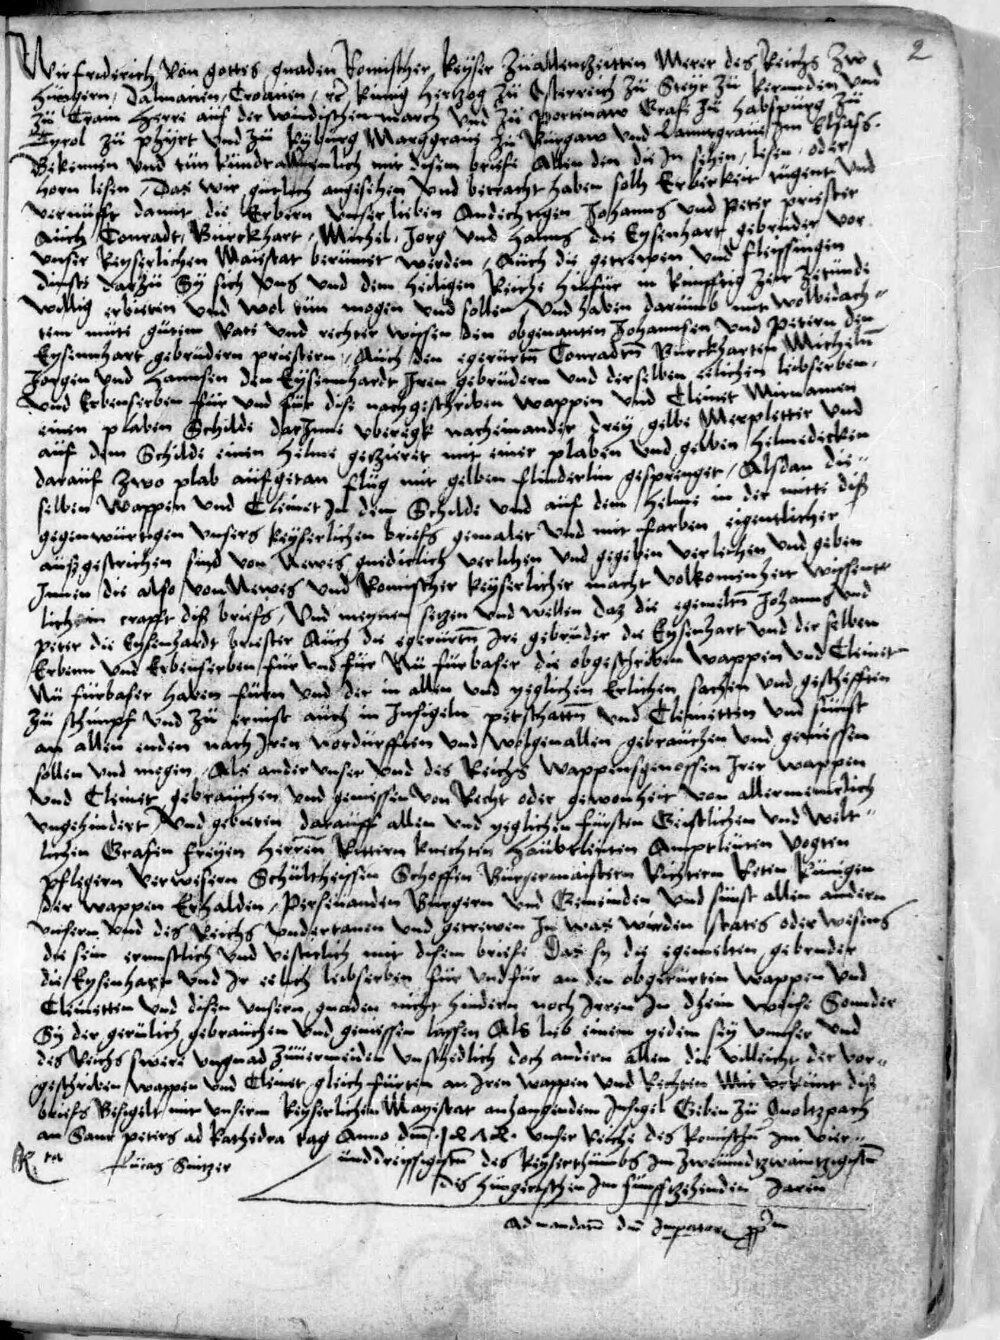 2
Wir Friderich von gottes gnaden Romischer keyser zuallenntzeitten Merer des Reichs zw
Hungern, Dalmatien, Croatien, etc kunig Hertzog zu Osterreich zu Steyr zu kernnden vnd
zu Crain Herre auf der windischen march vnd zu Portenaw Graf zu habspurg zu
Tyrol zu phyrt vnd zu kyburg Marggraue zu Burgaw vnd Lanntgraue Im Elsass
Bekennen vnd tun kundt allermenniclich mit disem briefe Allen den die In sehen, lesen, oder
horn lesen, Das wir gutlich angesehen vnd betracht haben solh Erberkeit tugent vnd
vernufft damit die Erbern vnser lieben Andechtigen Johanns vnd Peter priester
Auch Conradt, Burckhart, Michel, Jorg vnd Hanns die Eysenhart gebruder vor
vnser keyserlichen Maiestat berumet werden, Auch die getrewen vnd fleyssigen
dinste darzu Sy sich vns vnd dem heiligen Reiche hinfur in kunfftig zeit zetunde
willig erbieten vnd wol tun mogen vnd sollen, Vnd haben darumb mit wolbedach-
tem mute gutem Rate vnd rechter wissen den obgenanten Johannsen vnd Petern den
Eysennhart gebrudern priestern, Auch den egerurten Conradten Burckharten Micheln
Jorgen vnd Hannsen den Eysennhardt Iren gebrudern vnd derselben eelichen leibserben,
vnd Erbenserben fur vnd fur dise nachgeschriben wappen vnd Cleinet Mitnamen
einen plaben Schilde darInne vberegk nacheinander drey gelbe Merpletter vnd
auf dem Schilde einen Helme gezieret mit einer plaben vnd gelben Helmedecken
darauf zwo plab aufgetan flug mit gelben flinderlin gesprenget, Alsdan die-
selben wappen vnd Cleinet In dem Schilde vnd auf dem Helme in der mitte diß
gegenwurtigen vnsers keyserlichen briefs gemalet vnd mit farben eigentlicher
außgestrichen sind von Newes gnediclich verlihen vnd gegeben verleihen vnd geben
Innen die also von Newes vnd Romischer keyserlicher macht volkomenheit wissent-
lich in crafft diß briefs, Vnd meynen setzen vnd wellen daz die egemelten Johanns vnd
Peter die Eysenhardt briester Auch die egerurten Ire gebruder die Eysenhart vnd derselben
Erbenn vnd Erbenserben fur vnd fur Nu furbaser die obgeschriben wappen vnd Cleinet
Nu furbaser haben furn vnd der in allen vnd yeglichen Erlichen sachen vnd geschefften
zu schimpf vnd zu ernst auch in Insigeln petschatten vnd Cleinetten vnd sunst
an allen enden nach Iren notdurfften vnd wolgenallen gebrauchen vnd geniessen
sollen vnd mogen, Als ander vnser vnd des Reichs wappensgenossen Irer wappen
vnd Cleinet gebrauchen vnd geniessen von Recht oder gewonheit von allermeniclich
vngehindert, Vnd gebieten darauff allen vnd yeglichen fursten Geistlichen vnd welt-
lichen Grafen freyen Herren Rittern knechten Haubtleuten Amptleuten vogten
pflegern verwesern Schulthessen Schoffen Burgermaistern Richtern Reten kunigen
der wappen Erhalden, Persenanden Burgern vnd Gemeinden vnd sunst allen andern
vnsern vnd des Reichs vndertanen vnd getrewen In was wirden states oder wesens
die sein ernnstlich vnd vesticlich mit disem briefe Das sy die egemelten gebruder
die Eysenhart vnd Ir eelich leibserben fur vnd fur an den obgerurten wappen vnd
Cleinetten vnd disen vnsern gnaden nicht hindern noch Irren In dhein weise Sonnder
Sy der gerulich gebrauchen vnd geniessen lassen Als lieb einem yedem sey vnnser vnd
des Reichs swere vngnad zuuermeiden vnschedlich doch andern allen die villeicht der vor-
geschriben wappen vnd Cleinet gleich furten an Iren wappen vnd Rechten Mit vrkunt diß
briefs Besigelt mit vnserm keyserlichen Mayestat anhangendem Insigel Geben zu
an Sant peters ad kathedra tag Anno dni vnser Reiche des Romischen Im vier-
Rta Lucas Snitzer vnddreyssigisten des keyserthumbs Im zweundtzwaintzigisten
des Hungerischen Im funfftzehenden Jaren
Ad mandatum dni Imperatoris pp